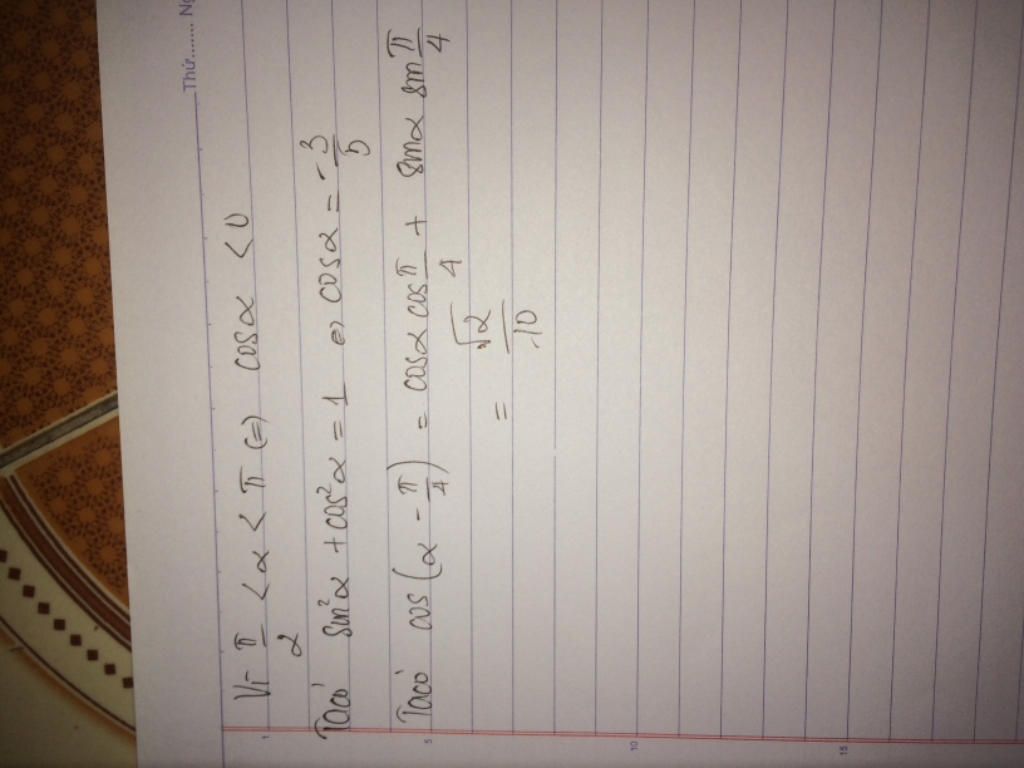 Thứ........ Ng
Vì π/2 < α < π (=) cosα < 0
Ta có sin²α + cos²α = 1 => cosα = -3/5
Ta có cos(α - π/4) = cosα cos π/4 + sinα sin π/4
= √2/10
1
5
10
15